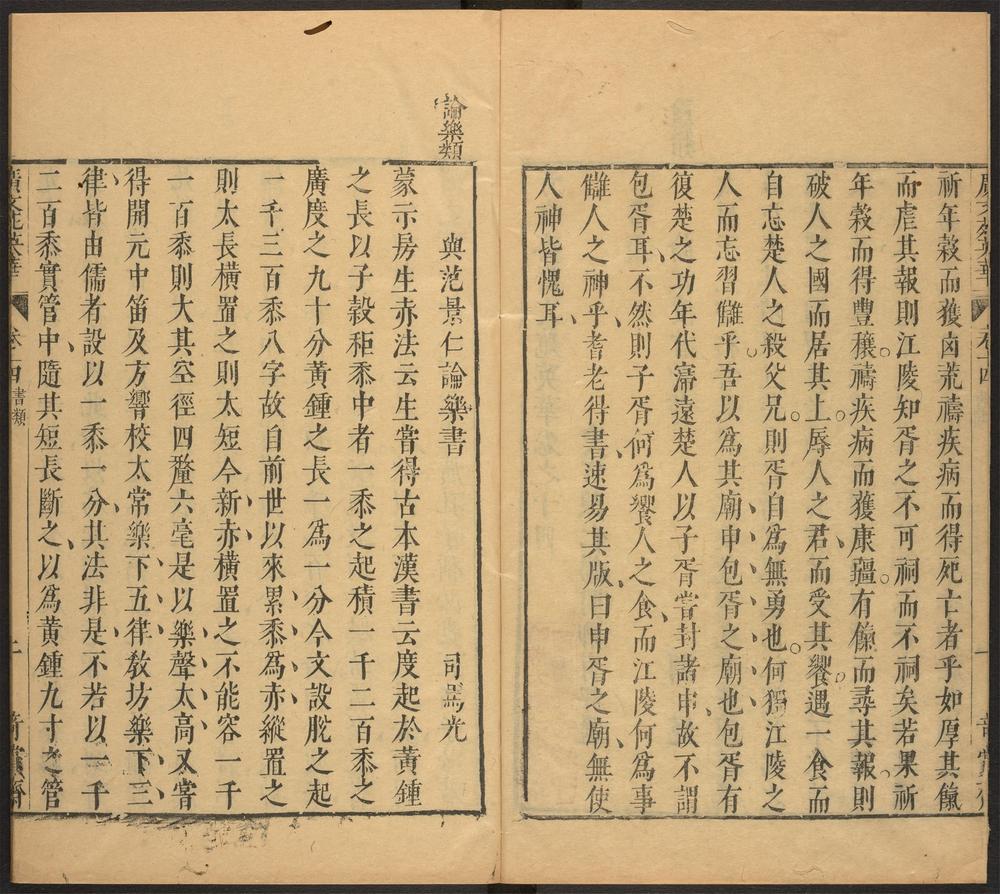 祈年穀而獲凶荒禱疾病而得死亡者乎如厚其儀
而虐其報則江陵知胥之不可祠而不祠矣若果祈
年穀而得豐穰禱疾病而獲康疆有儀而尋其報則
破人之國而居其上辱人之君而受其饗遇一食而
自忘楚人之殺父兄則胥自為無勇也何獨江陵之
人而忘習讎乎吾以為其廟申包胥之廟也包胥有
復楚之功年代寖遠楚人以子胥嘗封諸申故不謂
包胥耳不然則子胥何為饗人之食而江陵何為事
讎人之神乎耆老得書速易其版曰申胥之廟無使
人神皆愧耳
論樂類
與范景仁論樂書
司馬光
蒙示房生赤法云生嘗得古本漢書云度起於黃鍾
之長以子穀秬黍中者一黍之起積一千二百黍之
廣度之九十分黃鍾之長一為一分今文設脫之起
一千三百黍八字故自前世以來累黍為赤縱置之
則太長橫置之則太短今新赤橫置之不能容一千
一百黍則大其空徑四釐六毫是以樂聲太高又嘗
得開元中笛及方響校太常樂下五律教坊樂下三
律皆由儒者設以一黍一分其法非是不若以一千
二百黍實管中隨其短長斷之以為黃鍾九寸之管
廣文苑英華
卷十四
書類
二